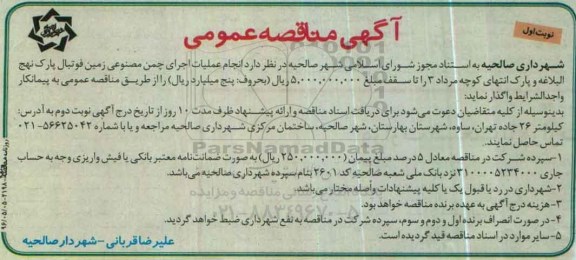 آگهی مناقصه عمومی
نوبت اول
شهرداری صالحیه به استناد مجوز شورای اسلامی شهر صالحیه در نظر دارد انجام عملیات اجرای چمن مصنوعی زمین فوتبال پارک نهج
البلاغه و پارک انتهای کوچه مرداد ۳ را تا سقف مبلغ ۵,۰۰۰,۰۰۰,۰۰۰ ریال (بحروف: پنج میلیارد ریال) را از طریق مناقصه عمومی به پیمانکار
واجدالشرایط واگذار نماید:
بدینوسیله از کلیه متقاضیان دعوت می‌شود برای دریافت اسناد مناقصه و ارائه پیشنهاد ظرف مدت ۱۰ روز از تاریخ درج آگهی نوبت دوم به آدرس:
کیلومتر ۲۶ جاده تهران، ساوه، شهرستان بهارستان، شهر صالحیه، ساختمان مرکزی شهرداری صالحیه مراجعه و یا با شماره ۵۶۶۲۵۰۴۲-۰۲۱
تماس حاصل نمایند.
۱-سپرده شرکت در مناقصه معادل ۵ درصد مبلغ پیمان (۲۵۰,۰۰۰,۰۰۰ ریال) به صورت ضمانت‌نامه معتبر بانکی یا فیش واریزی وجه به حساب
جاری ۳۱۰۰۰۰۵۲۳۴۰۰۰ نزد بانک ملی شعبه صالحیه کد ۲۶۰۱ بنام سپرده شهرداری صالحیه می‌باشد.
۲-شهرداری در رد یا قبول یک یا کلیه پیشنهادات واصله مختار می‌باشد.
۳-هزینه درج آگهی به عهده برنده مناقصه خواهد بود.
۴-در صورت انصراف برنده اول و دوم و سوم، سپرده شرکت در مناقصه به نفع شهرداری ضبط خواهد گردید.
۵-سایر موارد در اسناد مناقصه قید گردیده است.
علیرضا قربانی-شهردار صالحیه
ParsNamadData